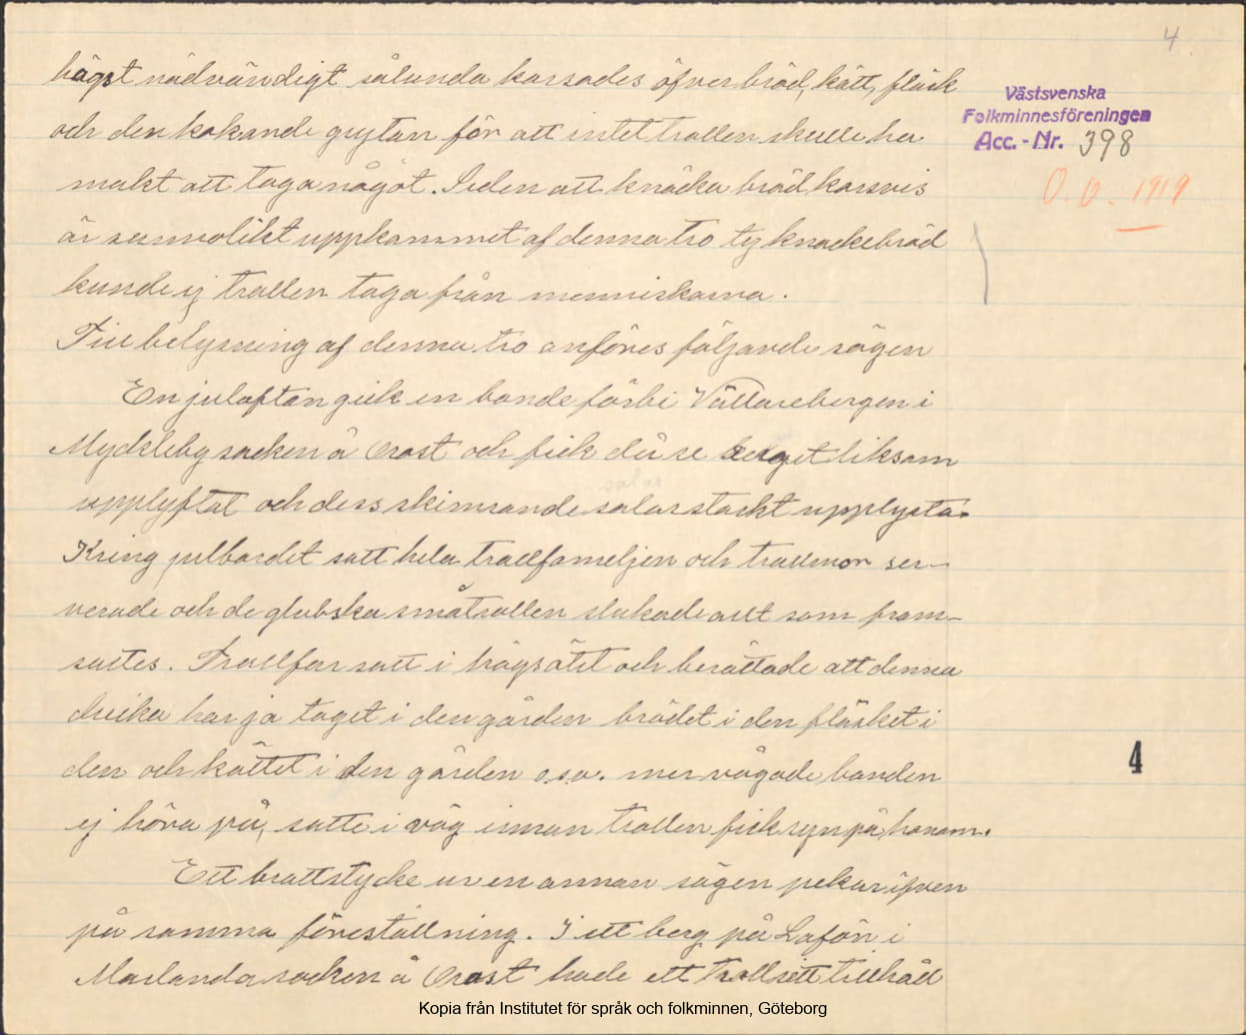 4.
högst nödvändigt sålunda korsades öfver bröd, kött, fläsk
Västsvenska
Folkminnesföreningen
Acc.-Nr. 398
och den kokande grytan för att intet trollen skulle ha
makt att taga något. Seden att knäcka bröd korsvis
O. D. 1919
är sannolikt uppkommet af denna tro ty knäckebröd
kunde ej trollen taga från menniskorna.
Till belysning af denna tro anföres följande sägen
En julafton gick en bonde förbi Vällarebergen i
Myckleby socken å Orost och fick då se berget liksom
upplyftat och dess skimrande salar starkt upplysta.
Kring julbordet satt hela trollfameljen och trollmor ser-
verade och de glubska småtrollen slukade allt som fram-
sattes. Trollfar satt i högsätet och berättade att denna
dricka har ja taget i den gården brödet i den fläsket i
den och köttet i den gården o.s.v. mer vågade bonden
4
ej höra på, satte i väg innan trollen fick syn på honom.
Ett brottstycke ur en annan sägen pekar äfven
på samma föreställning. I ett berg på Lafön i
Morlanda socken å Orost hade ett troll sitt tillhåll
Kopia från Institutet för språk och folkminnen, Göteborg